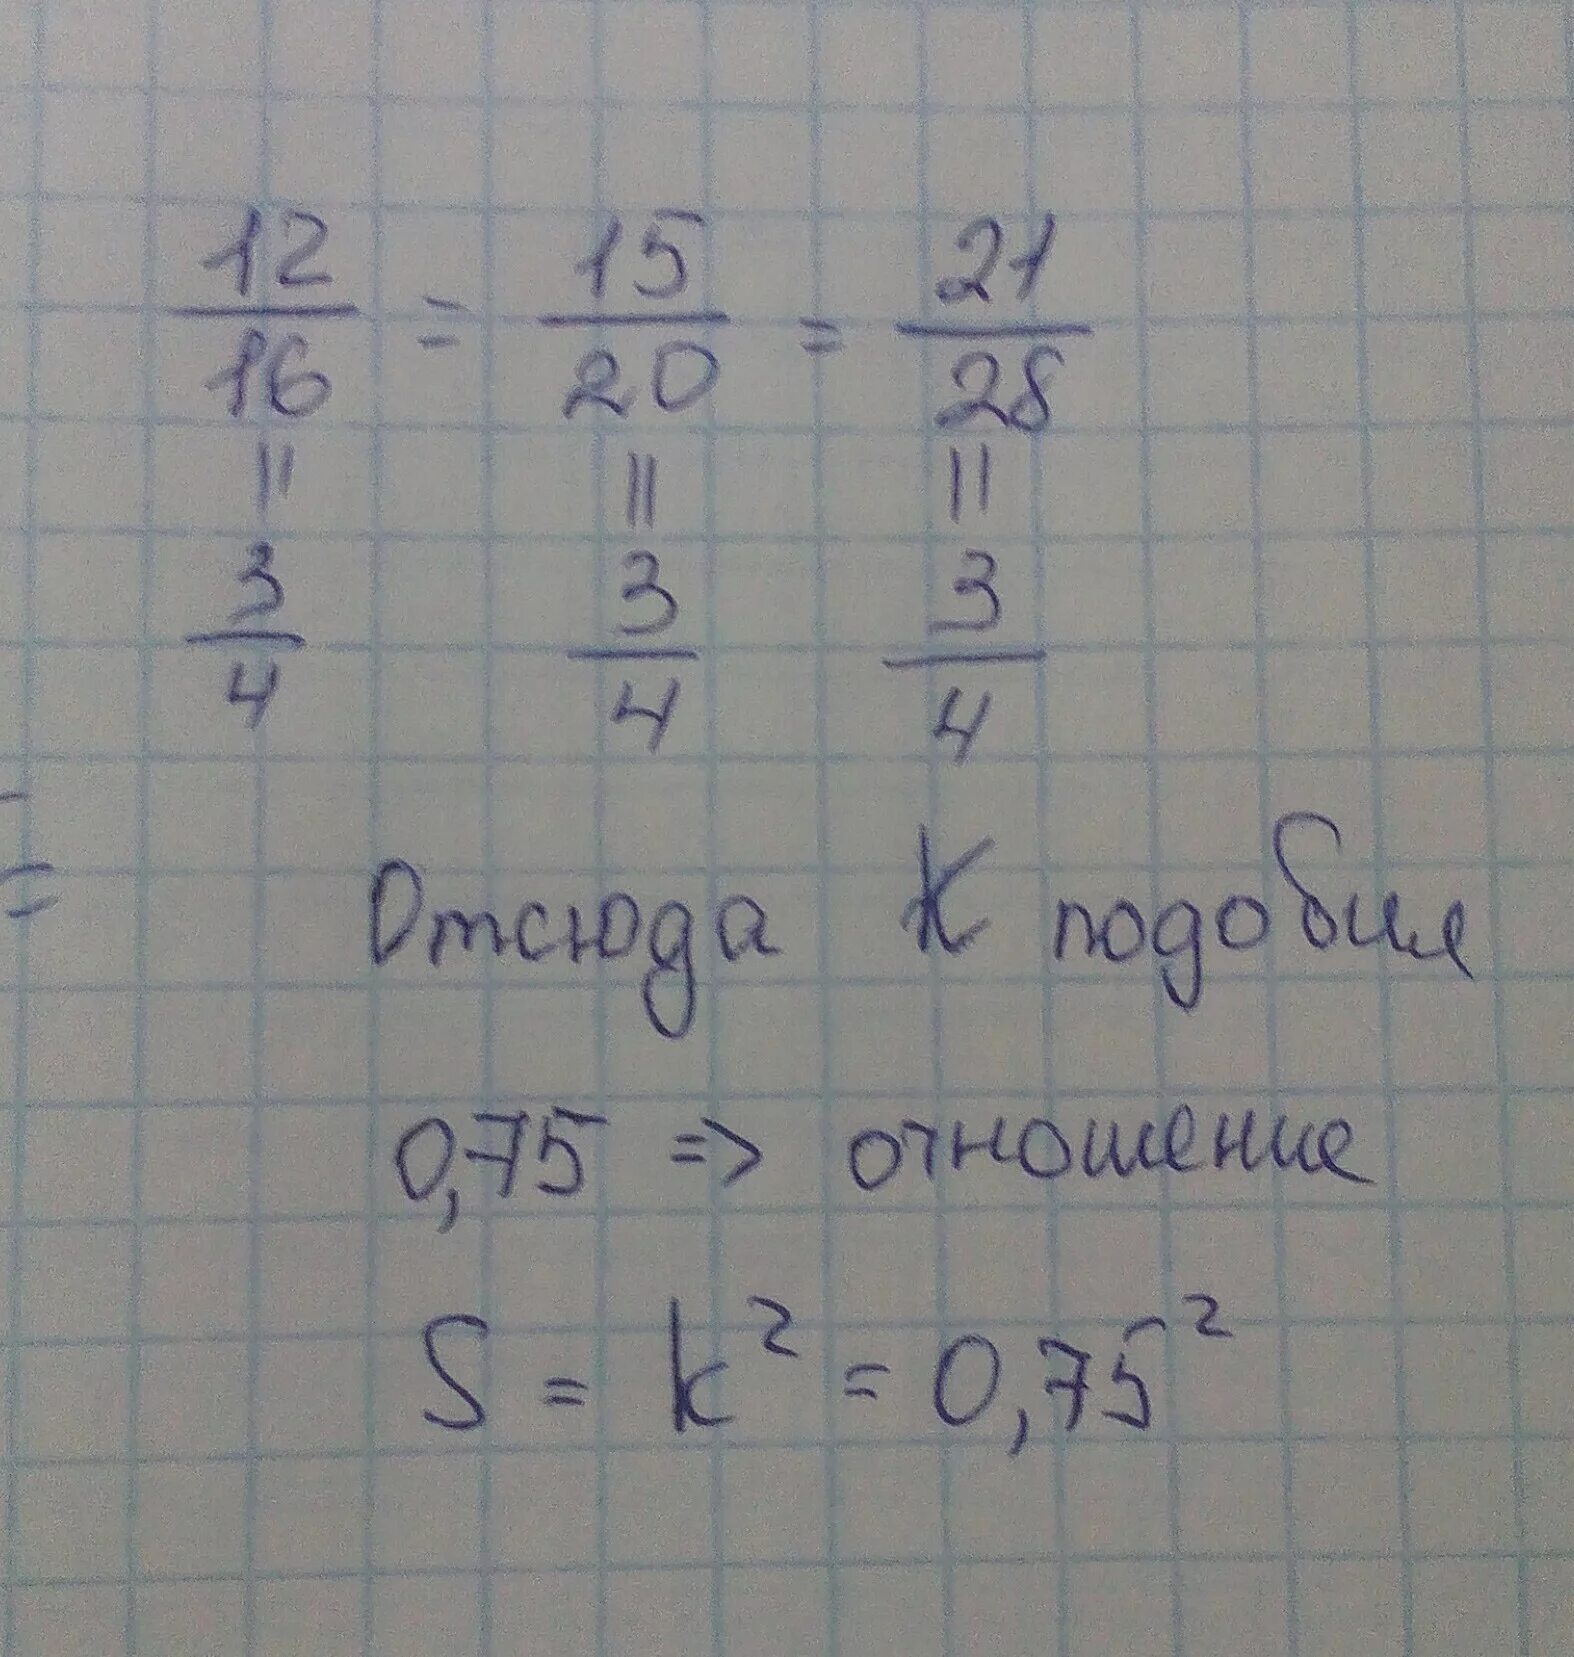 12/16 = 15/20 = 21/28
= = =
3/4 3/4 3/4
=
Отсюда К подобия
0,75 => отношение
S = k² = 0,75²